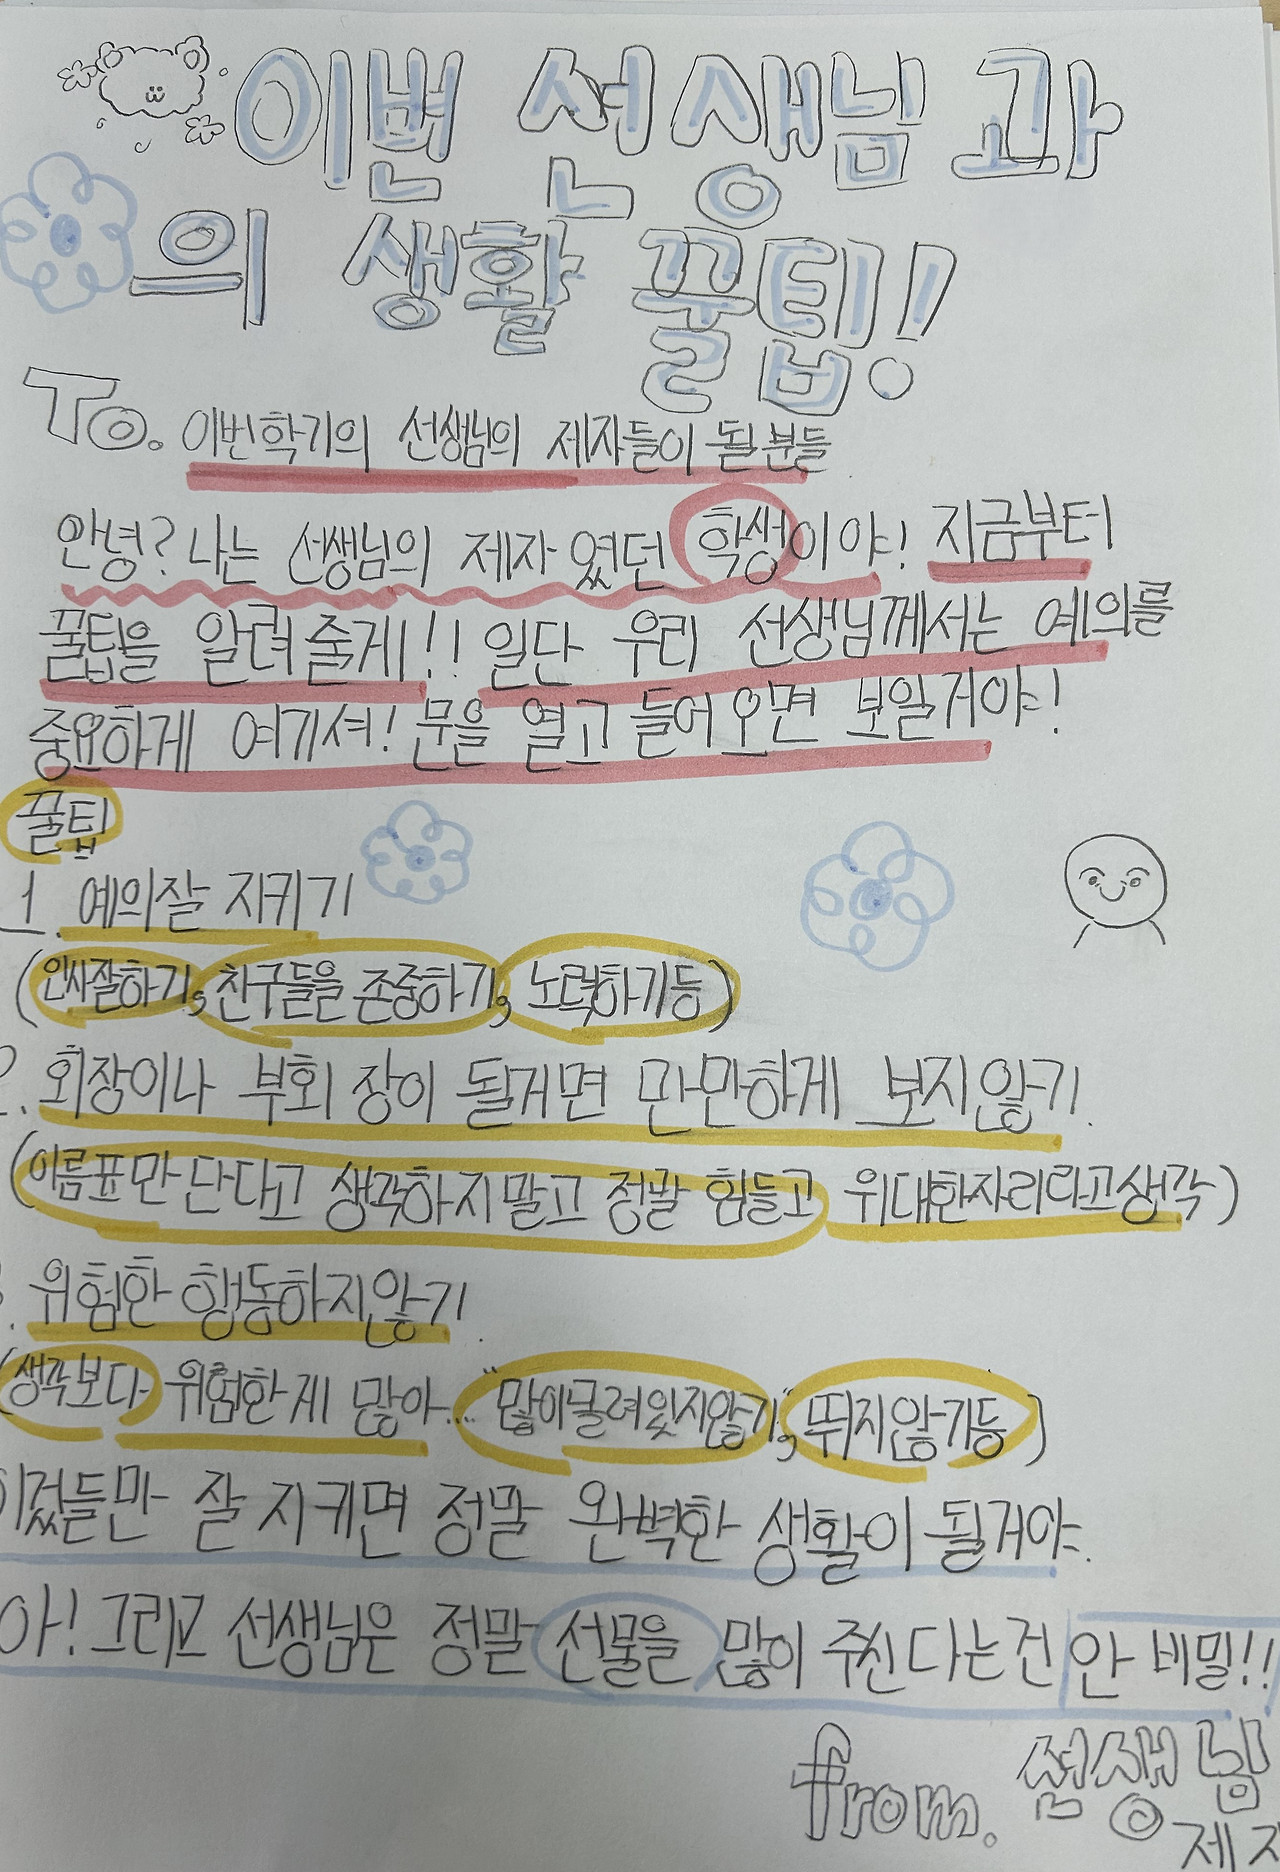 이번 선생님 과
의 생활 꿀팁!
To. 이번학기의 선생님의 제자들이 될분들
안녕? 나는 선생님의 제자 였던 학생이야! 지금부터
꿀팁을 알려줄게!! 일단 우리 선생님께서는 예의를
중요하게 여기셔! 문을 열고 들어오면 보일거야!
꿀팁
1. 예의잘 지키기
(인사잘하기, 친구들을 존중하기, 노력하기등)
2. 회장이나 부회장이 될거면 만만하게 보지않기.
(이름표만 단다고 생각하지말고 정말 힘들고 위대한자리라고생각)
3. 위험한 행동하지않기.
(생각보다 위험한게 많아... "많이몰려있지않기", 뛰지않기등)
이것들만 잘 지키면 정말 완벽한 생활이 될거야.
아! 그리고 선생님은 정말 선물을 많이 주신다는건 안 비밀!!
from. 선생님
제자